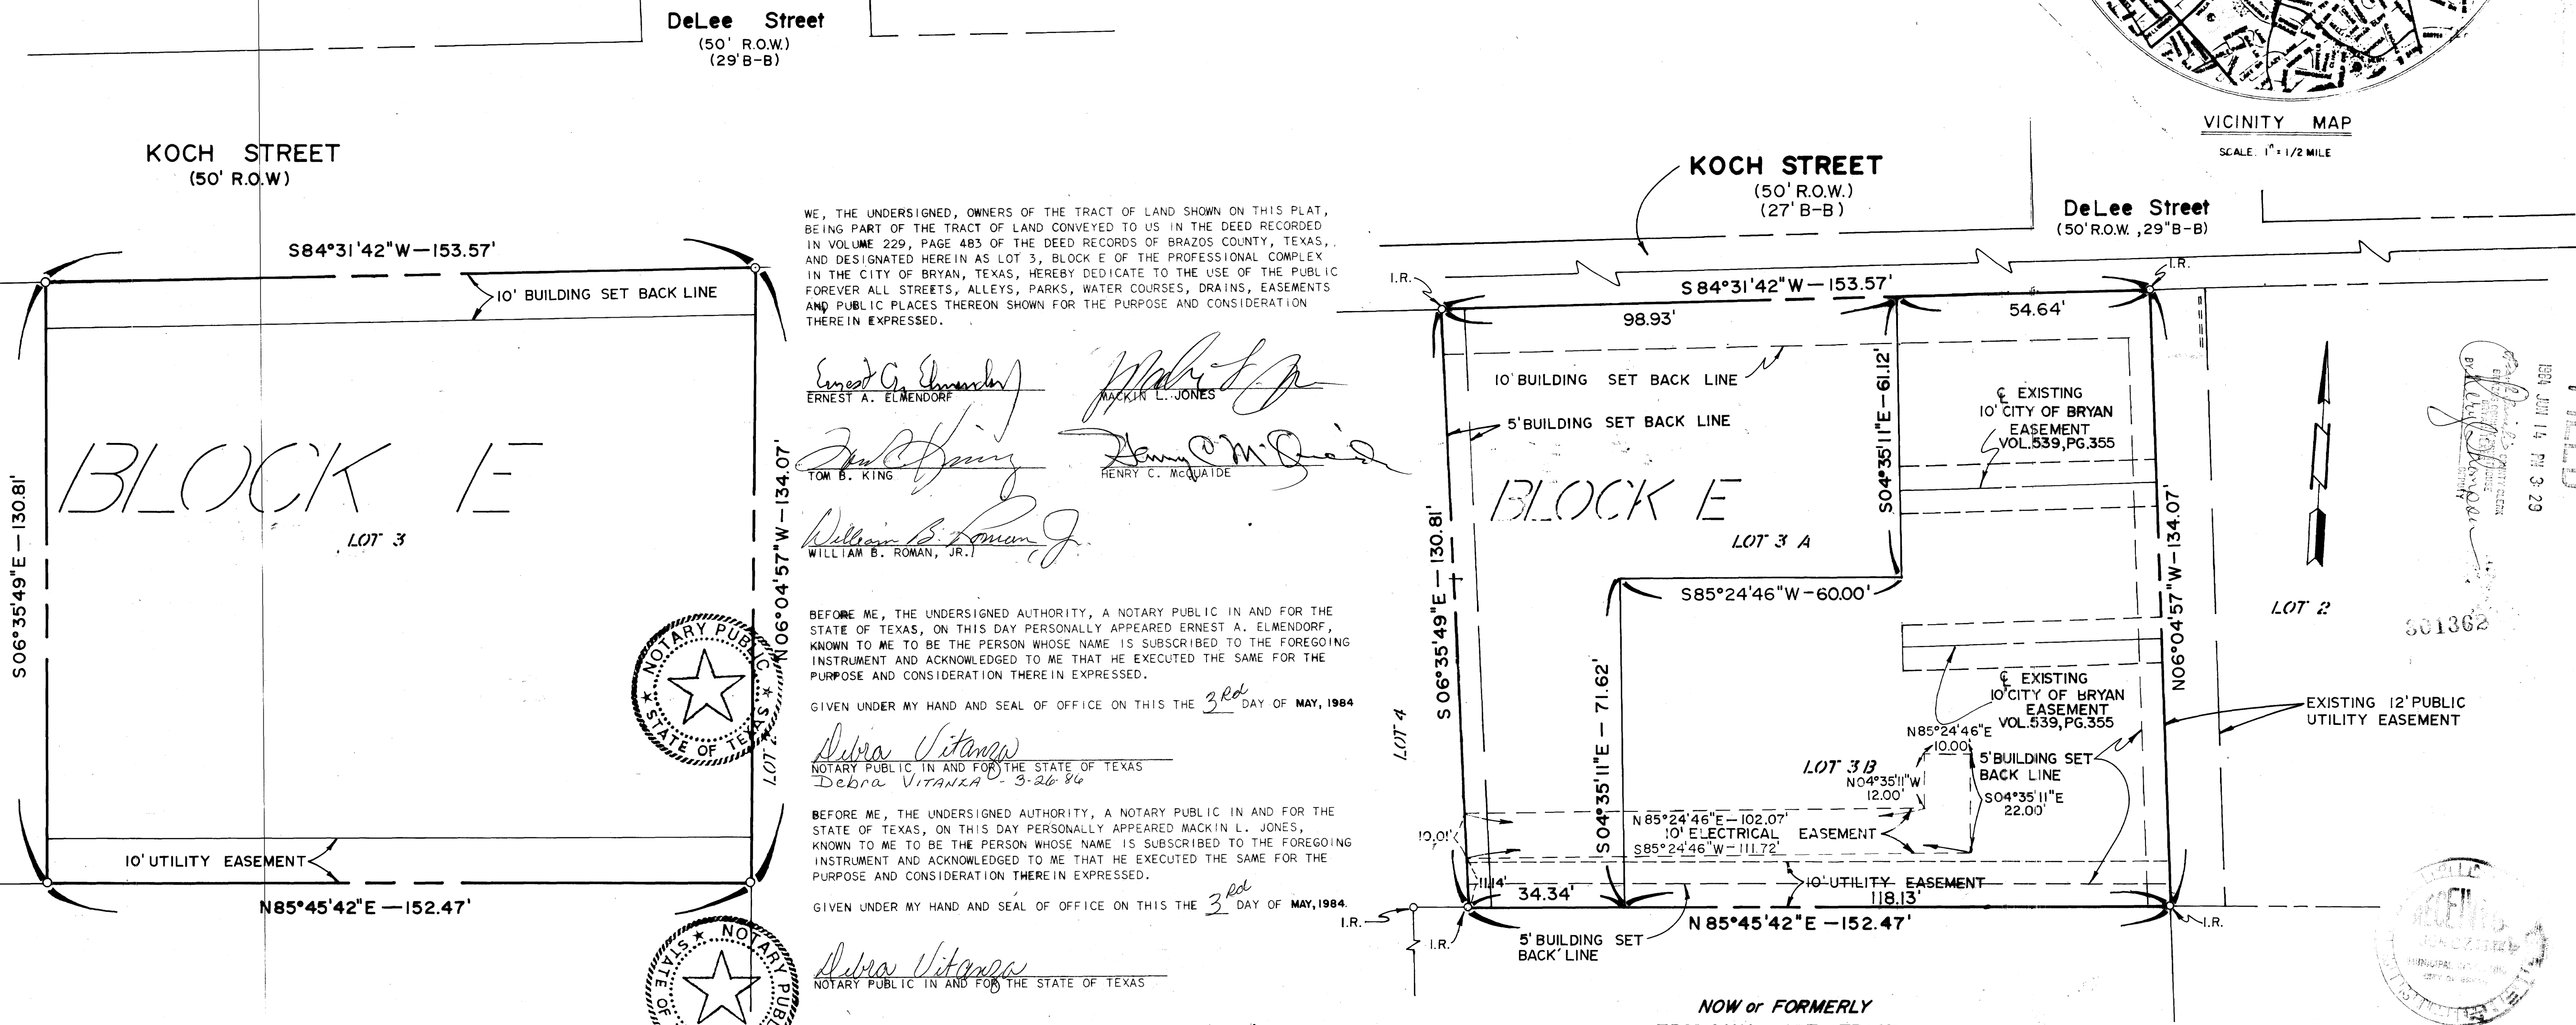 DeLee Street
(50' R.O.W.)
(29' B-B)
KOCH STREET
(50' R.O.W)
S84°31'42"W—153.57'
10' BUILDING SET BACK LINE
BLOCK E
LOT 3
S06°35'49"E—130.81'
N06°04'57"W—134.07'
LOT 2
10' UTILITY EASEMENT
N85°45'42"E—152.47'
NOTARY PUBLIC
STATE OF TEXAS
NOTARY PUBLIC
STATE OF
WE, THE UNDERSIGNED, OWNERS OF THE TRACT OF LAND SHOWN ON THIS PLAT,
BEING PART OF THE TRACT OF LAND CONVEYED TO US IN THE DEED RECORDED
IN VOLUME 229, PAGE 483 OF THE DEED RECORDS OF BRAZOS COUNTY, TEXAS,
AND DESIGNATED HEREIN AS LOT 3, BLOCK E OF THE PROFESSIONAL COMPLEX
IN THE CITY OF BRYAN, TEXAS, HEREBY DEDICATE TO THE USE OF THE PUBLIC
FOREVER ALL STREETS, ALLEYS, PARKS, WATER COURSES, DRAINS, EASEMENTS
AND PUBLIC PLACES THEREON SHOWN FOR THE PURPOSE AND CONSIDERATION
THEREIN EXPRESSED.
Ernest A. Elmendorf
ERNEST A. ELMENDORF
MACKIN L. JONES
TOM B. KING
Henry C McQuaide
HENRY C. McQUAIDE
William B. Roman Jr.
WILLIAM B. ROMAN, JR.
BEFORE ME, THE UNDERSIGNED AUTHORITY, A NOTARY PUBLIC IN AND FOR THE
STATE OF TEXAS, ON THIS DAY PERSONALLY APPEARED ERNEST A. ELMENDORF,
KNOWN TO ME TO BE THE PERSON WHOSE NAME IS SUBSCRIBED TO THE FOREGOING
INSTRUMENT AND ACKNOWLEDGED TO ME THAT HE EXECUTED THE SAME FOR THE
PURPOSE AND CONSIDERATION THEREIN EXPRESSED.
GIVEN UNDER MY HAND AND SEAL OF OFFICE ON THIS THE 3Rd DAY OF MAY, 1984
Debra Vitanza
NOTARY PUBLIC IN AND FOR THE STATE OF TEXAS
Debra VITANZA - 3-26-86
BEFORE ME, THE UNDERSIGNED AUTHORITY, A NOTARY PUBLIC IN AND FOR THE
STATE OF TEXAS, ON THIS DAY PERSONALLY APPEARED MACKIN L. JONES,
KNOWN TO ME TO BE THE PERSON WHOSE NAME IS SUBSCRIBED TO THE FOREGOING
INSTRUMENT AND ACKNOWLEDGED TO ME THAT HE EXECUTED THE SAME FOR THE
PURPOSE AND CONSIDERATION THEREIN EXPRESSED.
GIVEN UNDER MY HAND AND SEAL OF OFFICE ON THIS THE 3Rd DAY OF MAY, 1984.
Debra Vitanza
NOTARY PUBLIC IN AND FOR THE STATE OF TEXAS
VICINITY MAP
SCALE: 1" = 1/2 MILE
KOCH STREET
(50' R.O.W.)
(27' B-B)
DeLee Street
(50' R.O.W. ,29"B-B)
I.R.
I.R.
S84°31'42"W—153.57'
98.93'
54.64'
10' BUILDING SET BACK LINE
5' BUILDING SET BACK LINE
S04°35'11"E—61.12'
℄ EXISTING
10' CITY OF BRYAN
EASEMENT
VOL.539,PG.355
BLOCK E
LOT 3 A
S85°24'46"W—60.00'
S06°35'49"E—130.81'
S04°35'11"E—71.62'
N06°04'57"W—134.07'
LOT 4
LOT 2
℄ EXISTING
10' CITY OF BRYAN
EASEMENT
VOL.539,PG.355
EXISTING 12' PUBLIC
UTILITY EASEMENT
N85°24'46"E
10.00'
LOT 3B
N04°35'11"W
12.00'
5' BUILDING SET
BACK LINE
S04°35'11"E
22.00'
N85°24'46"E—102.07'
10' ELECTRICAL EASEMENT
S85°24'46"W—111.72'
10.01'
11.14'
34.34'
10' UTILITY EASEMENT
118.13'
I.R.
I.R.
I.R.
N85°45'42"E—152.47'
5' BUILDING SET
BACK LINE
NOW or FORMERLY
FILED
1984 JUN 14 PM 3:29
COUNTY CLERK
BY
DEPUTY
301362
RECEIVED